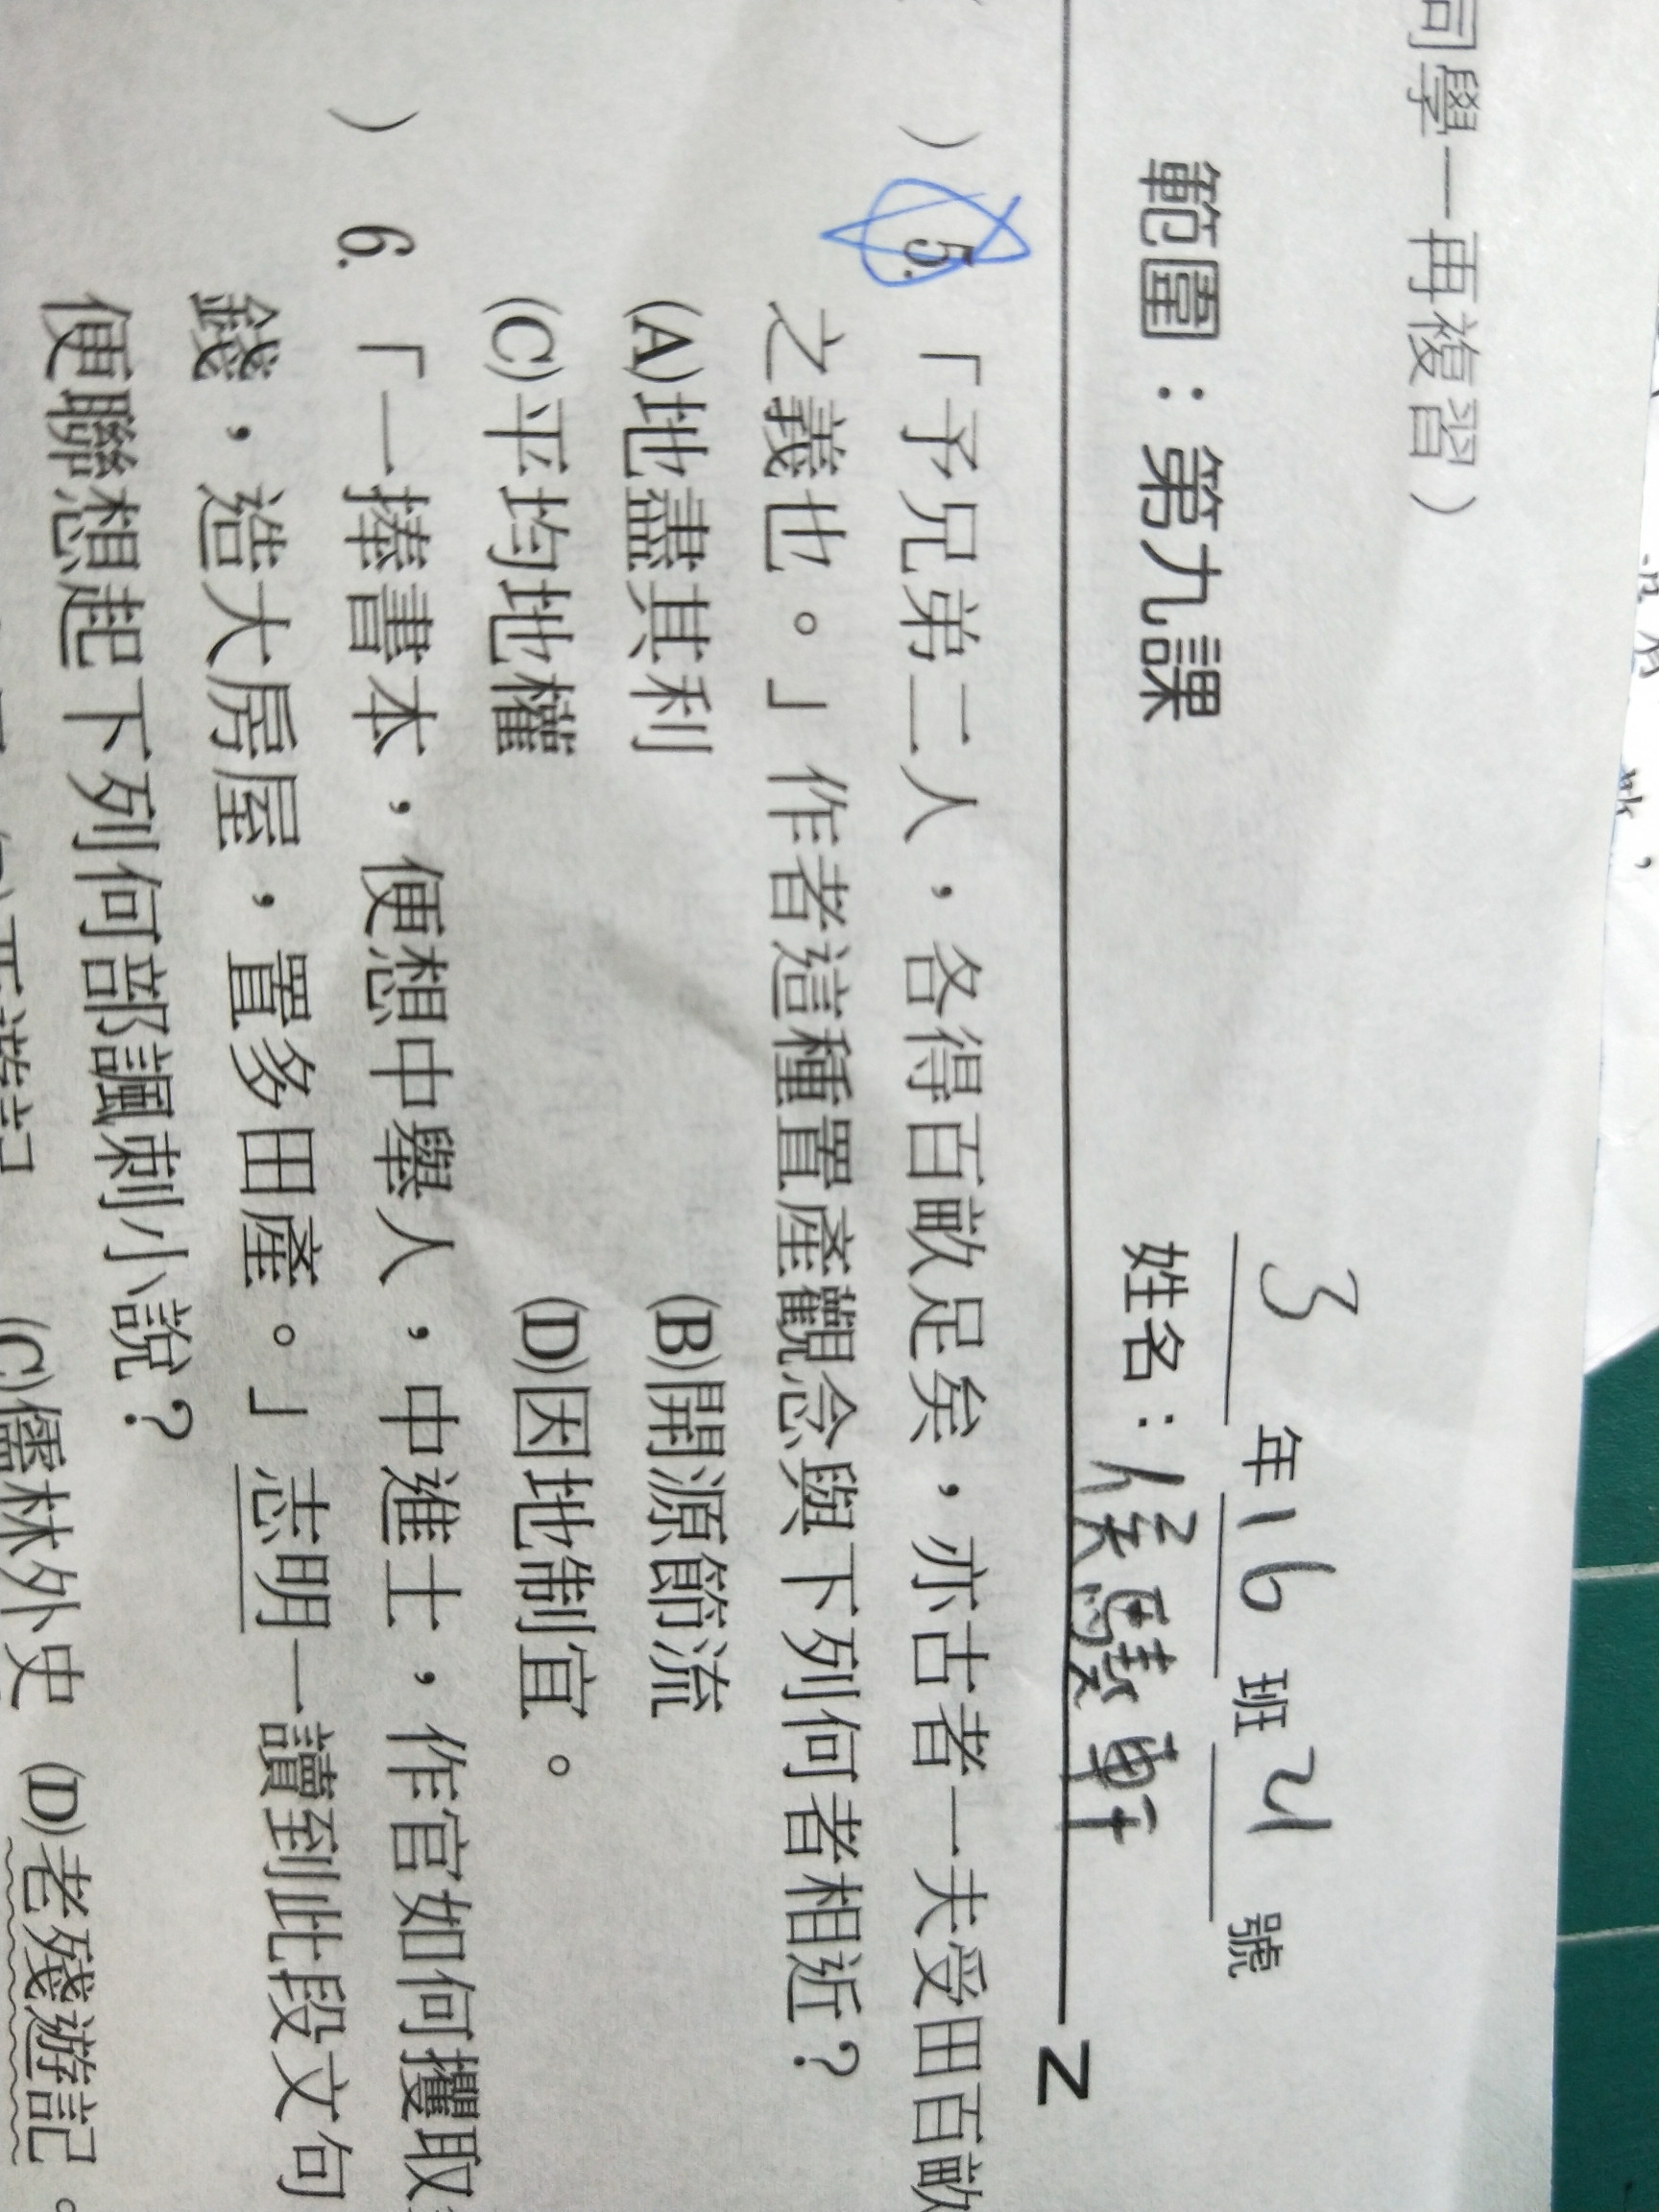 同學一再複習）
3年16班21號
範圍：第九課 姓名：侯驄軒
N
）5.「予兄弟二人，各得百畝足矣，亦古者一夫受田百畝
之義也。」作者這種置產觀念與下列何者相近？
(A)地盡其利 (B)開源節流
(C)平均地權 (D)因地制宜。
）6.「一捧書本，便想中舉人，中進士，作官如何攫取
錢，造大房屋，置多田產。」志明一讀到此段文句
便聯想起下列何部諷刺小說？
西遊記 (C)儒林外史 (D)老殘遊記。